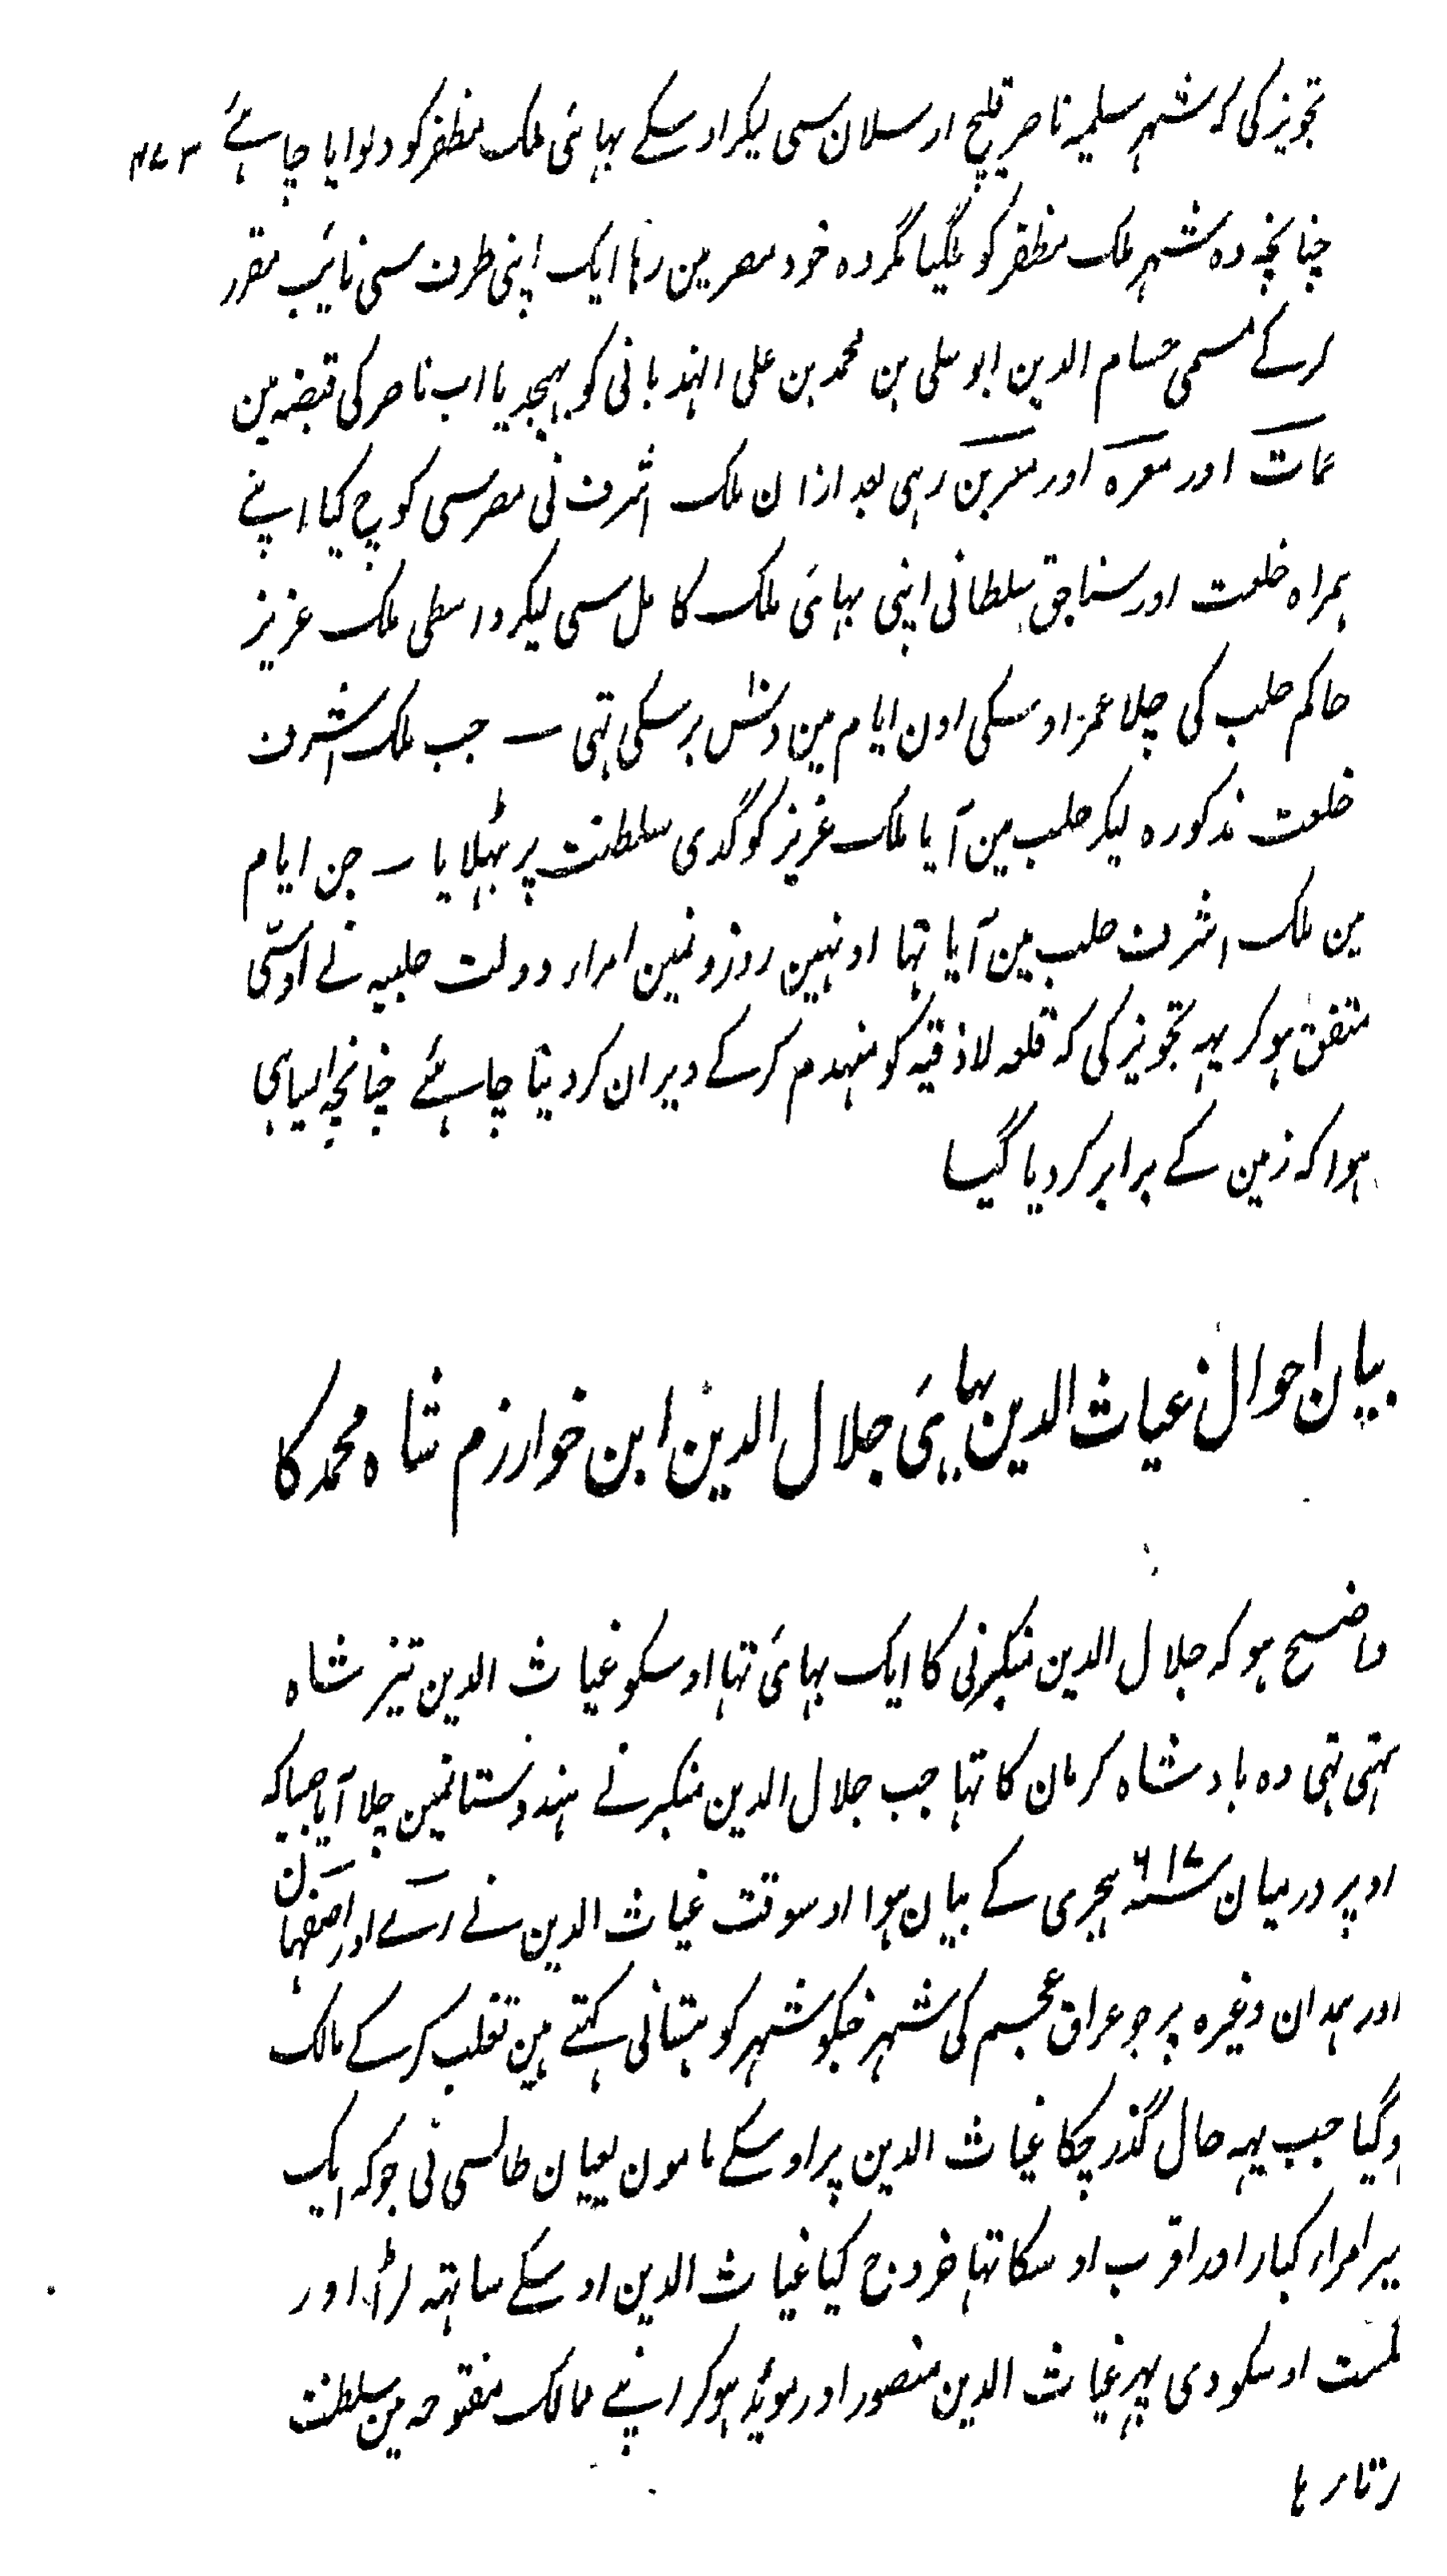 تجویز کی کہ شہر سلمیہ ناصر قلیج ارسلان سی لیکر اوسکے بہائی ملک مظفر کو دلوایا چاہئے ۴۷۳
چنانچہ وہ شہر ملک مظفر کو ملگیا مگر وہ خود مصر مین رہا ایک اپنی طرف سی نائب مقرر
کرکے مسمی حسام الدین ابو علی بن محمد بن علی الہندبانی کو بہیجدیا اب ناصر کی قبضہ مین
حمات اور معرہ اور بعرین رہی بعد ازان ملک اشرف نی مصر سی کوچ کیا اپنے
ہمراہ خلعت اور سناجق سلطانی اپنی بہائی ملک کامل سی لیکر واسطی ملک عزیز
حاکم حلب کی چلا عمر اوسکی اون ایام مین دش برسکی تہی ۔ جب ملک اشرف
خلعت مذکورہ لیکر حلب مین آیا ملک عزیز کو گدی سلطنت پر بٹہلایا ۔ جن ایام
مین ملک اشرف حلب مین آیا تہا اونہین روزونمین امراء دولت حلبیہ نے اوسّی
متفق ہوکر یہہ تجویز کی کہ قلعہ لاذقیہ کو منہدم کرکے ویران کر دینا چاہئے چنانچہ ایسا ہی
ہوا کہ زمین کے برابر کر دیا گیا
بیان احوال غیاث الدین بہایئ جلال الدین ابن خوارزم شاہ محمد کا
واضح ہو کہ جلال الدین منکبرنی کا ایک بہائی تہا اوسکو غیاث الدین تیز شاہ
کہتی تہی وہ بادشاہ کرمان کا تہا جب جلال الدین منکبرنے ہندوستانمین چلا آیا جیساکہ
اوپر درمیان سنہ ۶۱۷ ہجری کے بیان ہوا اوسوقت غیاث الدین نے رے اور اصفہان
اور ہمدان وغیرہ پر جو عراق عجم کی شہر جنکو شہر کوہستانی کہتے ہین تغلب کرکے مالک
ہوگیا جب یہہ حال گذر چکا غیاث الدین پر اوسکے مامون یعیان طالسی نی جو کہ ایک
میر امراء کبار اور اقرب اوسکا تہا خروج کیا غیاث الدین اوسکے ساتہہ لڑا اور
شکست اوسکو دی پہر غیاث الدین منصور اور موید ہوکر اپنے ممالک مفتوحہ مین سلطنت
کرتا رہا